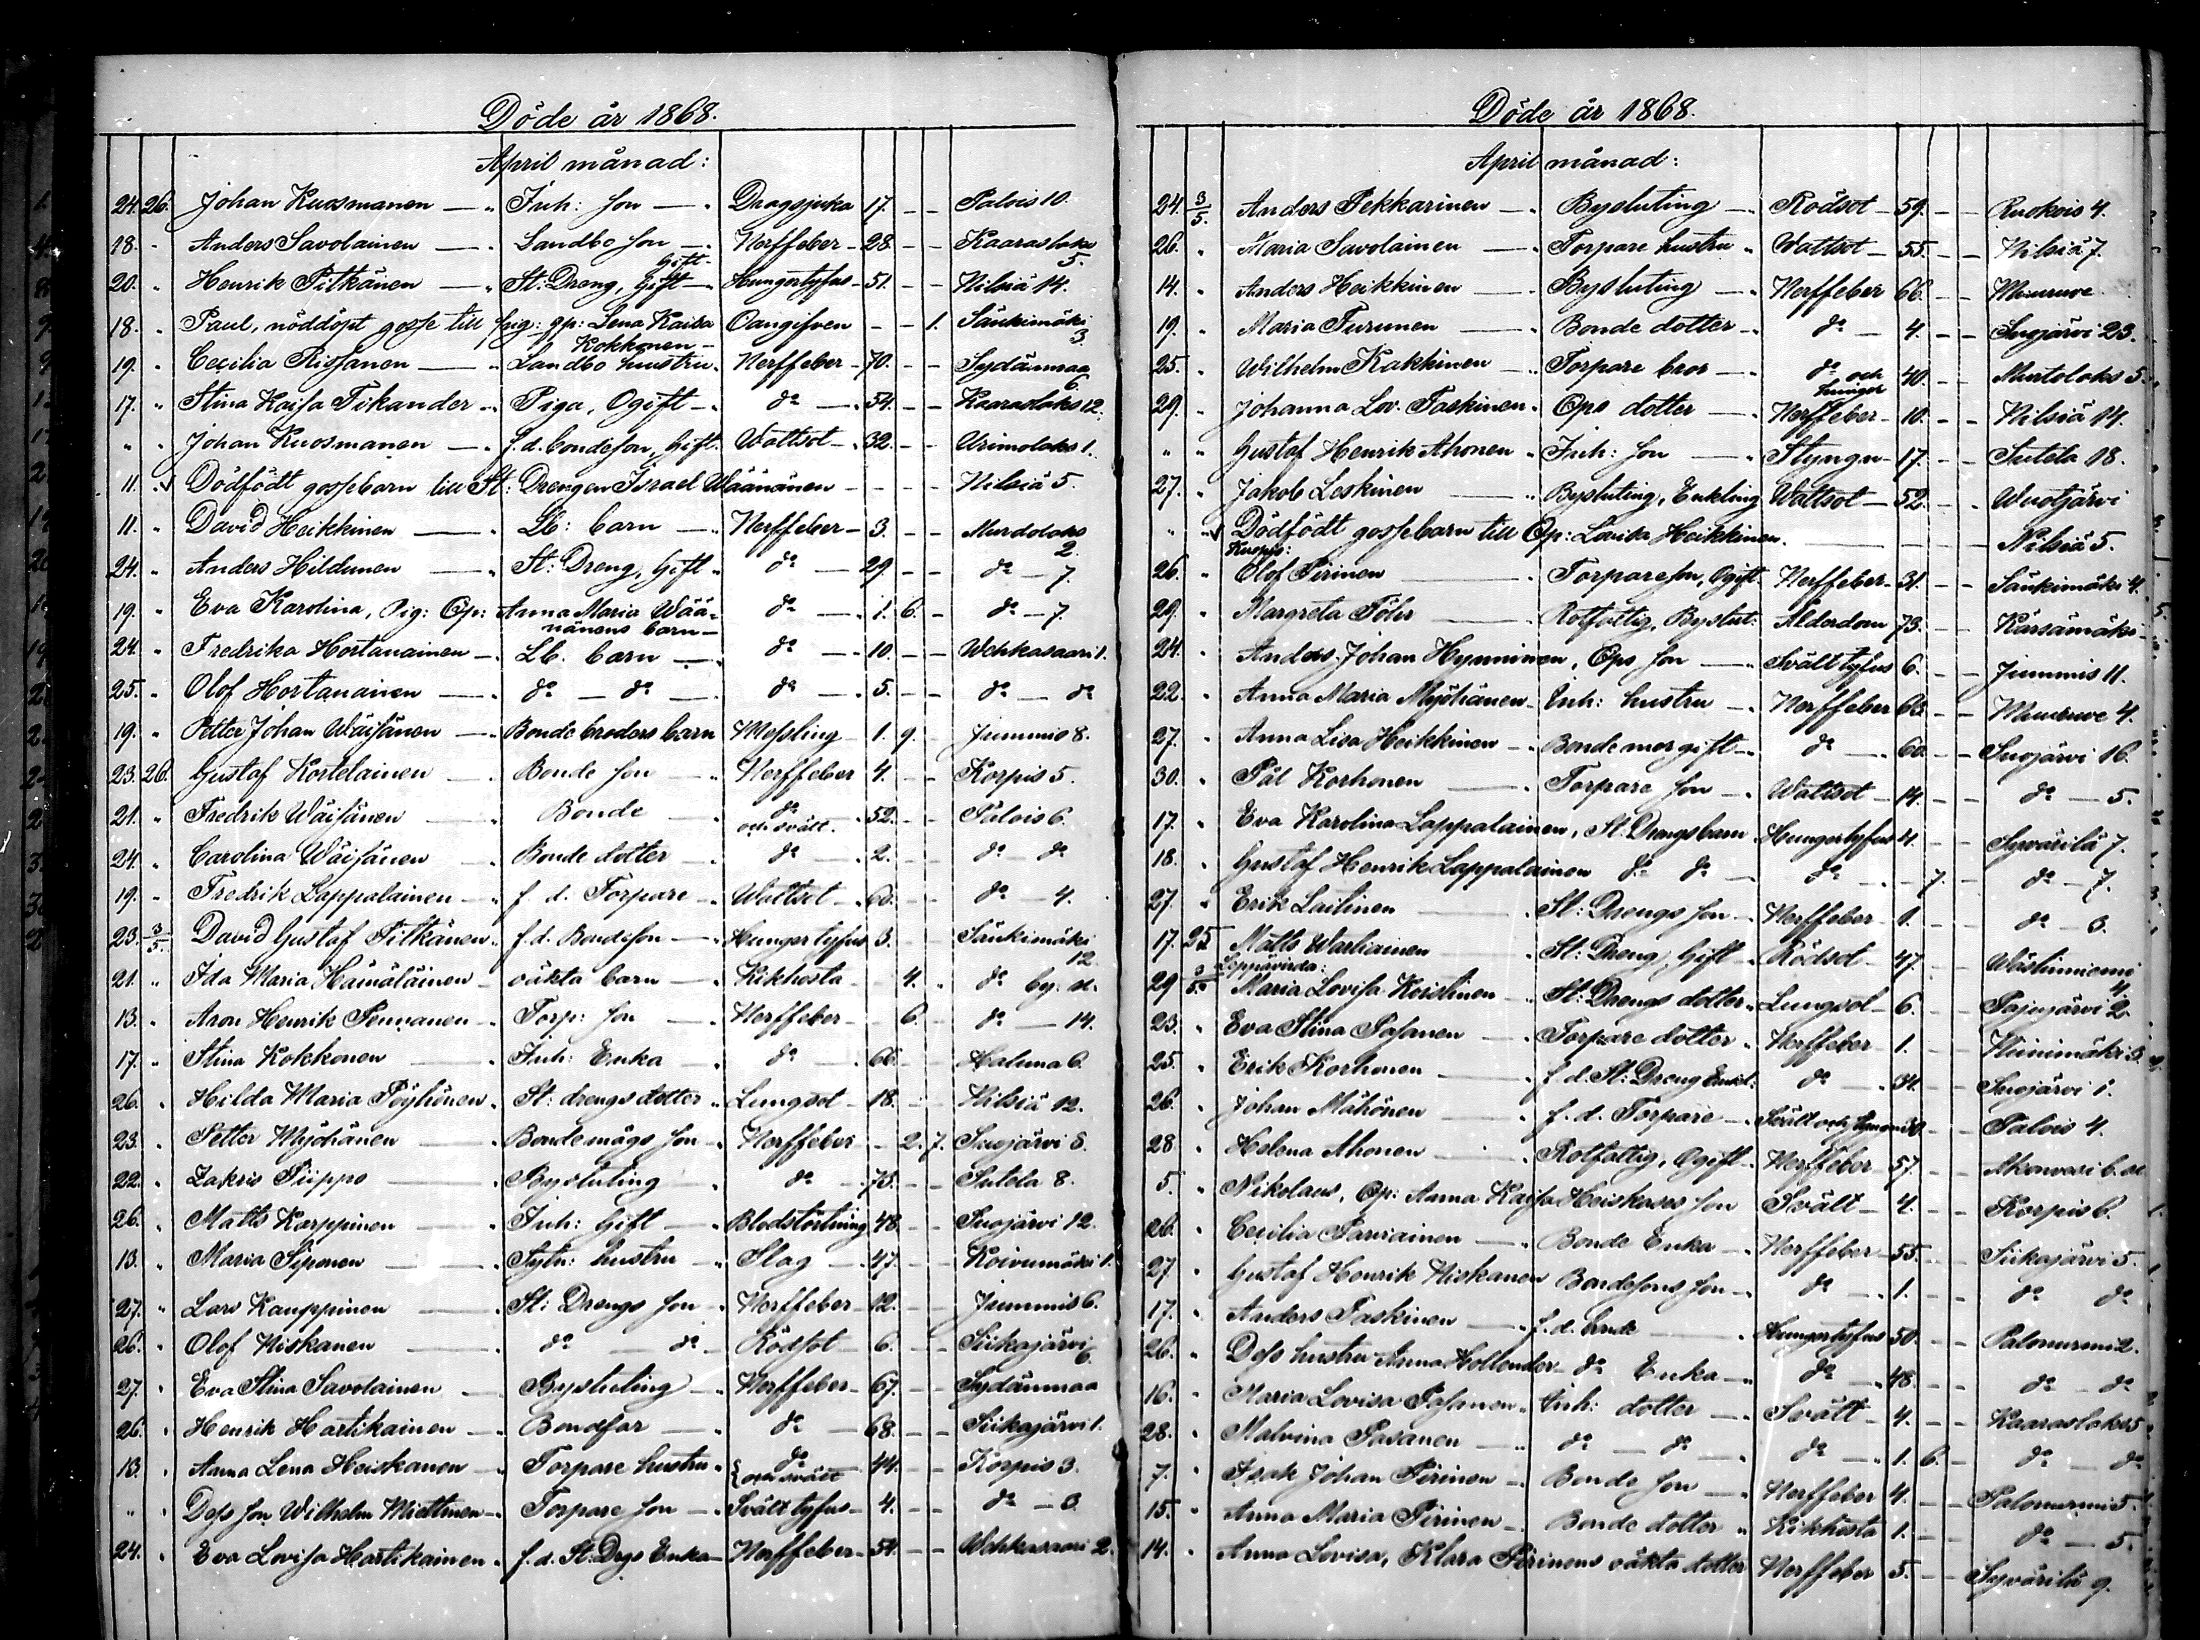 Döde år 1868.
April månad:
24. 26. Johan Kuosmanen — Inh: son — Dragsjuka 17. - - Palois 10.
18. " Anders Savolainen — Landbo son — Nerffeber - 28. - - Kaaraslaks 5.
20. " Henrik Pitkänen — St: Dreng, Gift — Hungertyfus - 51. - - Nilsiä 14.
18. " Paul, nöddöpt gosse till pig: qp: Lena Kaisa Kokkonen — Oangifven - - 1. Sänkimäki 3.
19. " Cecilia Rissanen — Landbo hustru " Nerffeber - 70. - - Sydänmaa 6.
17. " Stina Kaisa Tikander " Piga, Ogift — d:o — 54. - - Kaaraslaks 12.
" " Johan Kuosmanen — f.d. bondeson, Gift. Wattsot - 32. - - Urimolaks 1.
11. " Dödfödt gossebarn till St: Drengen Israel Wäänänen - - - - Nilsiä 5.
11. " David Heikkinen — Lb: barn — Nerffeber - 3. - - Murdolaks 2.
24. " Anders Hildunen — St: Dreng, Gift " d:o — 29. - - d:o — 7.
19. " Eva Karolina, Pig: Qp: Anna Maria Wäänänens barn — d:o — 1. 6. - d:o — 7.
24. " Fredrika Hortanainen — Lb. barn — d:o — 10. - - Wehkasaari 1.
25. " Olof Hortanainen — d:o — d:o — d:o — 5. - - d:o — d:o
19. " Petter Johan Wäisänen — Bonde broders barn Messling - 1. 9. - Jummis 8.
23. 26. Gustaf Kortelainen — Bonde son — Nerffeber 4. - - Korpis 5.
21. " Fredrik Wäisänen — Bonde — d:o och svält. 52. - - Palois 6.
24. " Carolina Wäisänen — Bonde dotter — d:o — 2. - - d:o — d:o
19. " Fredrik Lappalainen — f. d. Torpare — Wattsot - 60. - - d:o — 4.
23. 3/5. David Gustaf Pitkänen " f.d. Bondeson — Hungertyfus 3. - - Sänkimäki 12.
21. " Ida Maria Hämäläinen — oäkta barn — Kikhosta - 4. " d:o by. n.
13. " Aron Henrik Pennanen — Torp: son — Nerffeber - - 6. - d:o — 14.
17. " Stina Kokkonen — Inh: Enka — d:o — 66. - - Haluna 6.
26. " Hilda Maria Pöyhönen " St: drengs dotter " Lungsot - 18. - - Nilsiä 12.
23. " Petter Myöhänen — Bondemågs son — Nerffeber - - 2. 7. Suojärvi 8.
22. " Zakris Piippo — Bysluting — d:o — 75. - - Sutela 8.
26. " Matts Karppinen — Inh: Gift — Blodstörtning 48. - - Suojärvi 12.
13. " Maria Siponen — Sytn: hustru — Slag — 47. - - Koivumäki 1.
27. " Lars Kauppinen — St: Drengs son — Nerffeber - 12. - - Jummis 6.
26. " Olof Niskanen — d:o — d:o — Rödsot - 6. - - Siikajärvi 6.
27. " Eva Stina Savolainen — Bysluting — Nerffeber - 67. - - Sydänmaa
26. " Henrik Hartikainen — Bondfar — d:o — 68. - - Siikajärvi 1.
13. " Anna Lena Heiskanen — Torpare hustru " d:o och svält 44. - - Korpis 3.
" " Dess son Wilhelm Miettinen — Torpare son — Svälttyfus - 4. - - d:o — 3.
24. " Eva Lovisa Hartikainen " f.d. St: Drgs Enka — Nerffeber - 54. - - Wehkasaari 2.
Döde år 1868.
April månad:
24. 3/5. Anders Pekkarinen — Bysluting — Rödsot - 59. - - Ruokois 4.
26. " Maria Savolainen — Torpare hustru " Wattsot - 55. - - Nilsiä 7.
14. " Anders Heikkinen — Bysluting — Nerffeber 66. - - Muuruve
19. " Maria Turunen — Bonde dotter — d:o — 4. - - Suojärvi 23.
25. " Wilhelm Kakkinen — Torpare bror — d:o och hunger 40. - - Murtolaks 5.
29. " Johanna Lov. Taskinen " Qps dotter — Nerffeber - 10. - - Nilsiä 14.
" " Gustaf Henrik Ahonen " Inh: son — Styngn - 17. - - Sutela 18.
27. " Jakob Leskinen — Bysluting, Enkling Wattsot - 52. - - Wuotjärvi
" " Dödfödt gossebarn till Qp: Lovisa Heikkinen. — Nilsiä 5.
26. " Kuopio: Olof Pirinen — Torpareson, Ogift Nerffeber - 31. - - Sänkimäki 4.
29. " Margreta Pöhr — Rotfattig, Byslut: Ålderdom 73. - - Kärsämäki
24. " Anders Johan Hynninen, Qps son — Svälttyfus 6. - - Jummis 11.
22. " Anna Maria Myöhänen — Inh: hustru — Nerffeber 63. - - Muuruve 4.
27. " Anna Lisa Heikkinen — Bonde mor gift — d:o — 60. - - Suojärvi 16.
30. " Pål Korhonen — Torpare son — Wattsot - 14. - - d:o — 5.
17. " Eva Karolina Lappalainen, St: Drengs barn Hungertyfus 4. - - Syvärilä 7.
18. " Gustaf Henrik Lappalainen d:o d:o — d:o — - 7. - d:o — 7.
27. " Erik Laitinen — St: Drengs son — Nerffeber - 1. - - d:o — 3.
17. 25 Matts Wartiainen — St: Dreng, Gift — Rödsot - 47. - - Västinniemi 4.
29 3/5. Leppävirta: Maria Lovisa Keistinen — St: Drengs dotter " Lungsot - 6. - - Pajujärvi 2.
23. " Eva Stina Pasanen — Torpare dotter " Nerffeber - 1. - - Niinimäki 3.
25. " Erik Korhonen — f.d. St: Dreng Enkl: d:o — 34. - - Suojärvi 1.
26. " Johan Mähönen — f. d. Torpare — Svält och 30. - - Palois 4.
28. " Helena Ahonen — Rotfattig, Ogift — Nerffeber - 57. - - Akonvesi 6.
5. " Nikolaus, Qp: Anna Kaisa Heiskanes son Svält - 4. - - Korpis 6.
26. " Cecilia Parviainen — Bonde Enka — Nerffeber - 55. - - Siikajärvi 5.
27. " Gustaf Henrik Niskanen Bondesons son — d:o — 1. - - d:o d:o
17. " Anders Taskinen — f.d. bonde — Hungertyfus 50. - - Palonurmi 2.
26. " Dess hustru Anna Hollender — d:o Enka — d:o — 48. - - d:o — d:o
16. " Maria Lovisa Pasanen " Inh: dotter — Svält - 4. - - Kaaraslaks 5
28. " Malvina Pasanen — d:o — d:o — d:o — 1. 6. - d:o — d:o
7. " Isak Johan Pirinen — Bonde son — Nerffeber 4. - - Palonurmi 5.
15. " Anna Maria Pirinen — Bonde dotter " Kikhosta 1. - - d:o — 5.
14. " Anna Lovisa, Klara Pirinens oäkta dotter Nerffeber 5. - - Syvärilä 9.